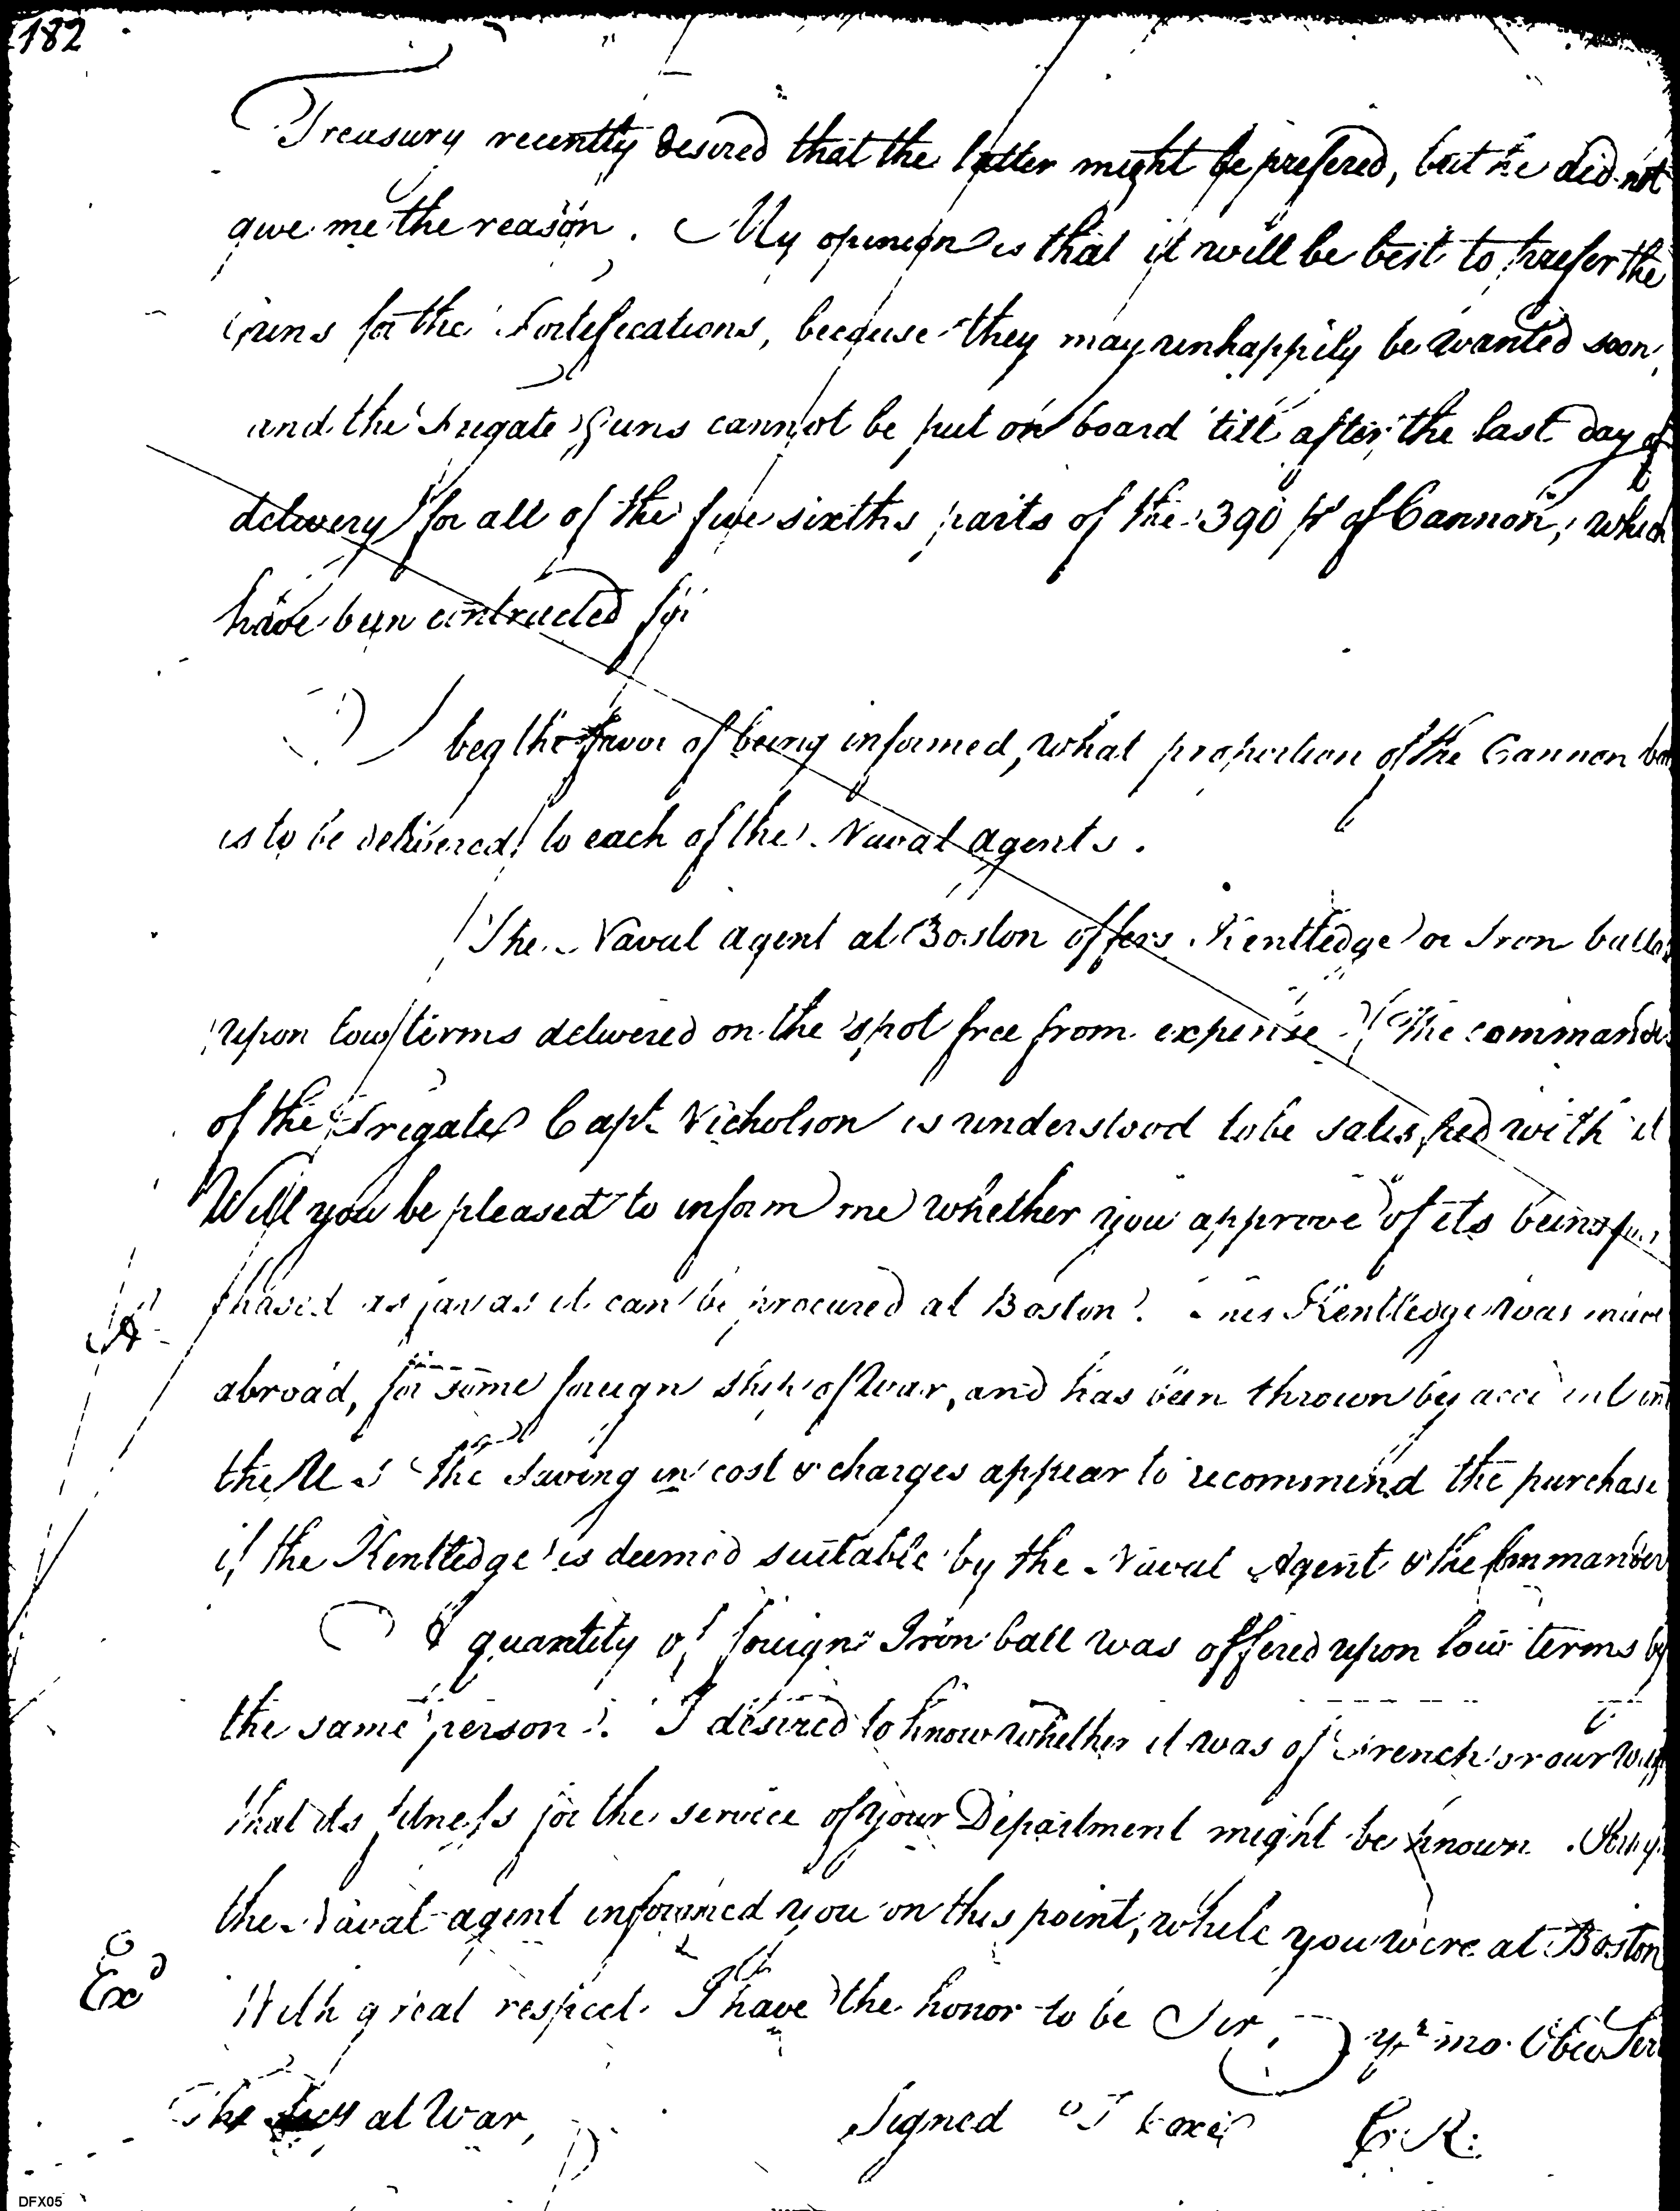 182
Treasury recently desired that the latter might be prefered, but he did not
give me the reason. My opinion is that it will be best to prefer the
Guns for the Fortifications, because they may unhappily be wanted soon,
and the Frigate Guns cannot be put on board 'till after the last day of
delivery for all of the five sixths parts of the 390 ps of Cannon, which
have been contracted for
I beg the favor of being informed, what proportion of the Cannon
is to be delivered to each of the Naval agents.
The Naval agent at Boston offers Kentledge or Iron
upon low terms delivered on the spot free from expense. The
of the Frigate Capt Nicholson is understood to be satisfied with it
Will you be pleased to inform me whether you approve of its being
chased as far as it can be procured at Boston? This Kentledge was made
abroad, for some foreign ship of War, and has been thrown by accident
the U S The saving in cost & charges appear to recommend the purchase
if the Kentledge is deemed suitable by the Naval Agent & the Commander
A quantity of foreign Iron ball was offered upon low terms by
the same person. I desired to know whether it was of French or our
that its fitness for the service of your Department might be known.
the Naval agent informed you on this point, while you were at Boston
Exd With great respect I have the honor to be Sir yr mo. Obed Ser
The Secy at War, Signed T Coxe C. R.
DFX05